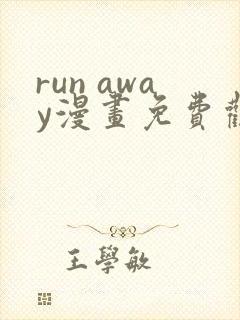 run awa
y漫畫免費
王學敏